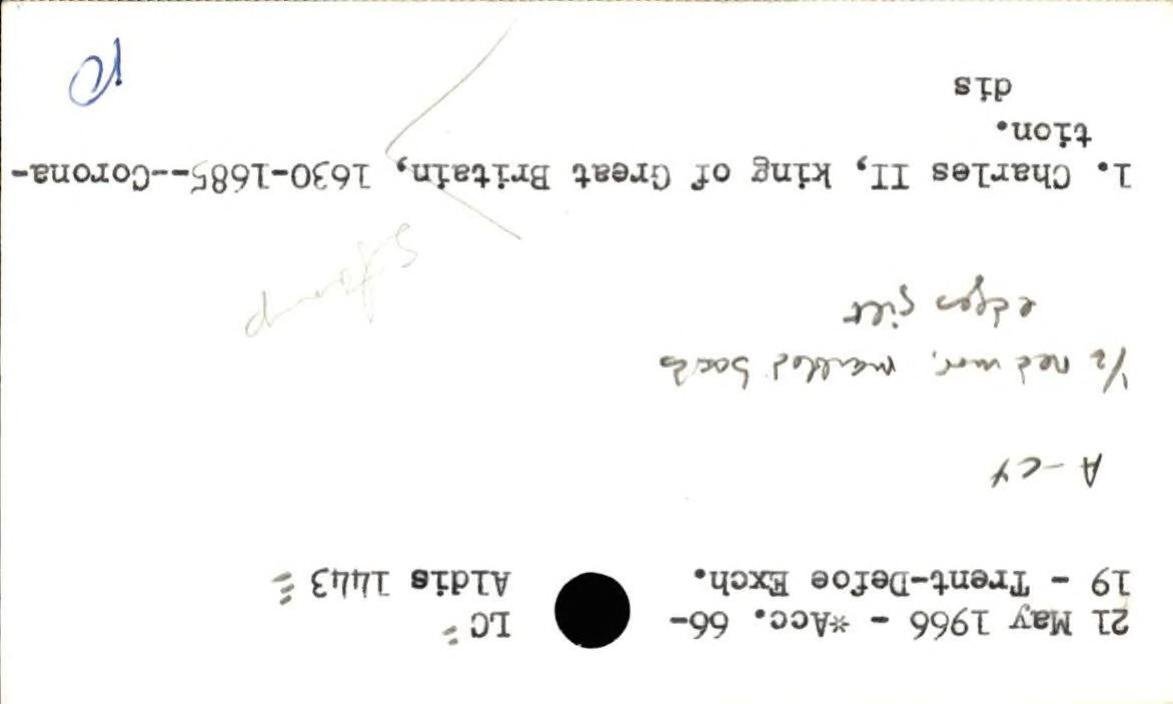 21 May 1966 - *Acc. 66-    LC =
19 - Trent-Defoe Exch.    Aldis 1443 =
A-C4
1/2 red mor, marbled boards
edges gilt
1. Charles II, king of Great Britain, 1630-1685--Corona-
tion.
dis